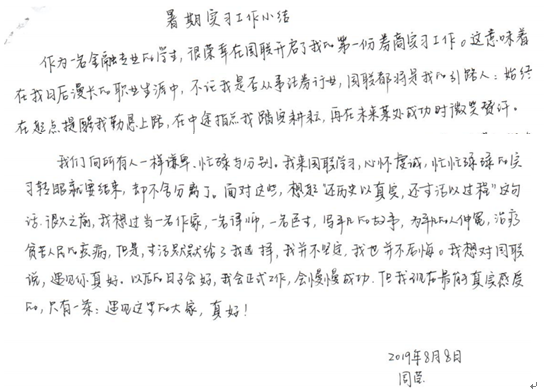 暑期实习工作小结
作为一名金融专业的学生，很荣幸在国联开启了我的第一份券商实习工作。这意味着
在我日后漫长的职业生涯中，不论我是否从事证券行业，国联都将是我的引路人：始终
在起点提醒我勤恳上路，在中途指点我踏实耕耘，再在未来某处成功时微笑赞许。
我们向所有人一样谦卑、忙碌与分别。我来国联学习，心怀虔诚，忙忙碌碌的实
习转眼就要结束，却不舍分离了。面对这些，想起“还历史以真实，还生活以过程”这句
话。很久之前，我想过当一名作家，一名律师，一名医生，写平凡的故事，为平凡的人伸冤，治疗
贫苦人民的疾病，但是，生活最终给了我选择，我并不坚定，我也并不后悔。我想对国联
说，遇见你真好。以后的日子会好，我会正式工作，会慢慢成功。但我现在最有真实感受
的，只有一条：遇见这里的大家，真好！
2019年8月8日
周